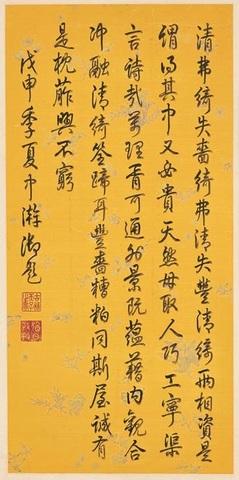 清弗綺失嗇綺弗清失豐清綺兩相資是
謂得其中又貴天然毋取人巧工寧渠
言詩哉萬理胥可通外景既蘊藉內觀合
冲融清綺筌蹄耳豐嗇糟粕同斯屋誠有
是枕葄興不窮
戊申季夏中澣御題